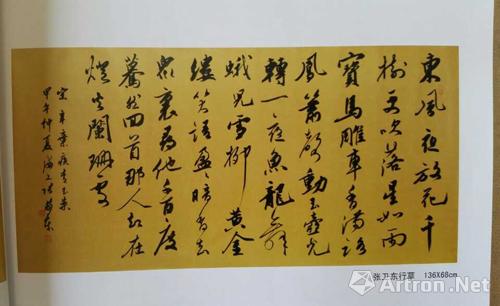 東風夜放花千
樹更吹落星如雨
寶馬雕車香滿路
鳳簫聲動玉壺光
轉一夜魚龍舞
蛾兒雪柳黃金
縷笑語盈盈暗香去
眾裏尋他千百度
驀然回首那人卻在
燈火闌珊處
宋辛棄疾青玉案
甲午仲夏海上張衛東
张卫东行草 136X68cm
Artron.Net